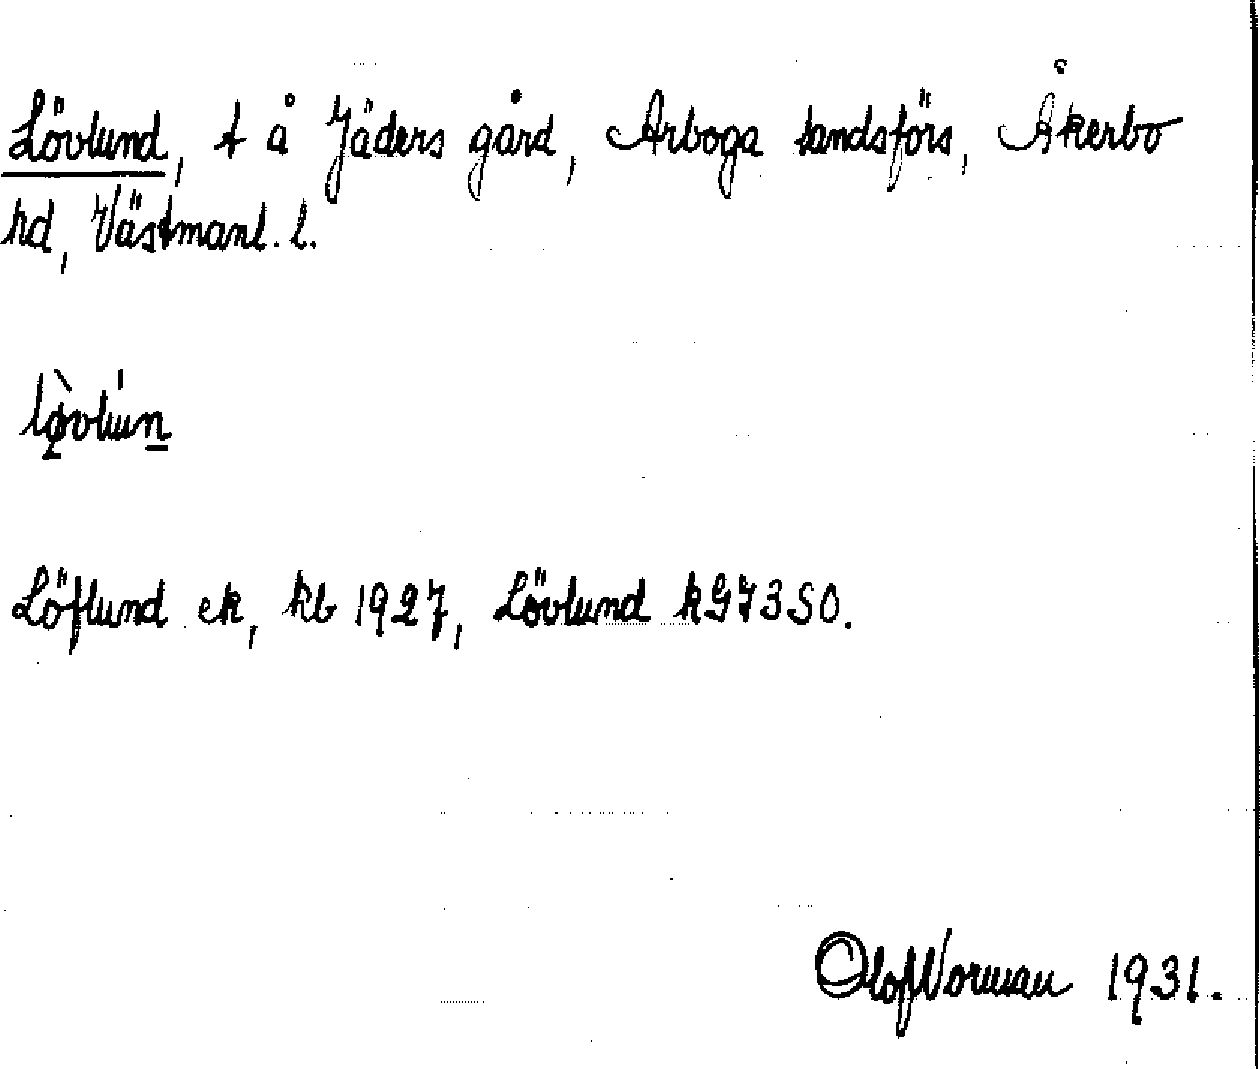 Lövlund, t å Jäders gård, Arboga landsförs, Åkerbo
hd, Västmanl. l.
lø̀vlún
Löflund ek, kb 1927, Lövlund kG73SO.
Olof Norman 1931.